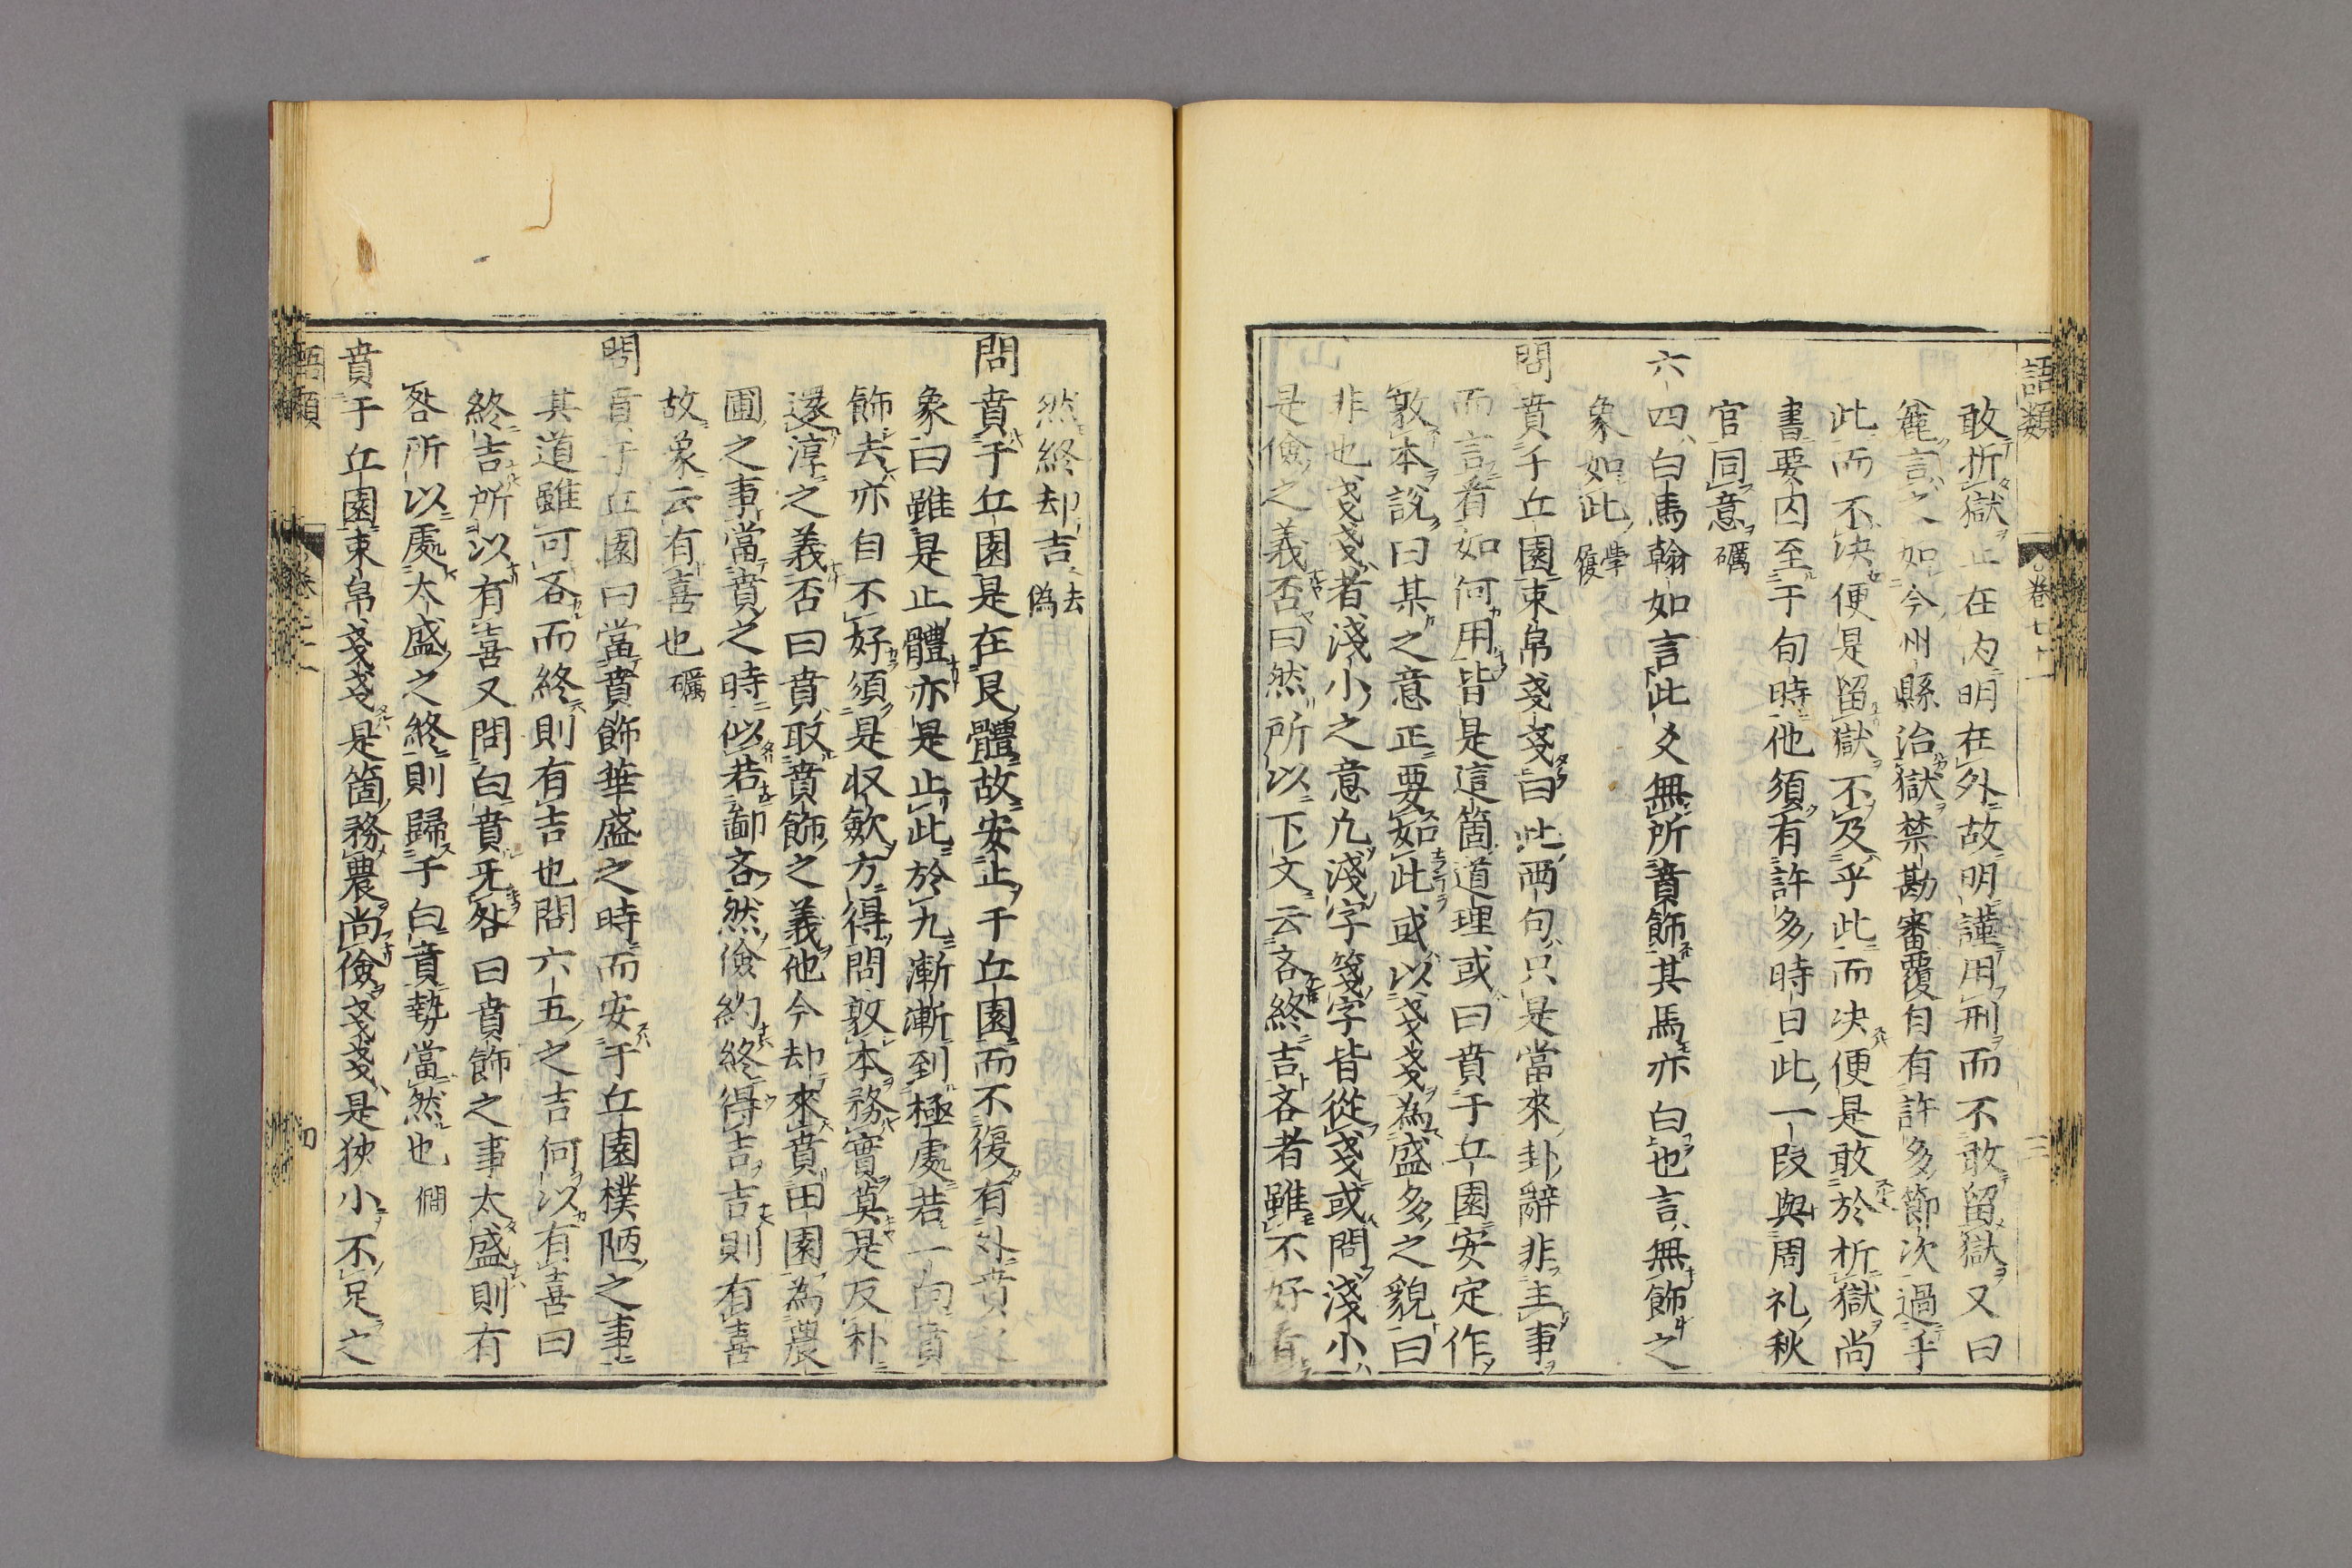 語類 卷七十一 三
敢折獄止在内明在外故明謹用刑而不敢留獄又曰
麄言之如今州縣治獄禁勘審覆自有許多節次過乎
此而不决便是留獄不及乎此而决便是敢於折獄尚
書要囚至于旬時他須有許多時日此一段與周礼秋
官同意礪
六四白馬翰如言此爻無所賁飾其馬亦白也言無飾之
象如此學履
問賁于丘園束帛戔戔曰此兩句只是當來卦辭非主事
而言看如何用皆是這箇道理或曰賁于丘園安定作
敦本說曰某之意正要如此或以戔戔為盛多之貌曰
非也戔戔者淺小之意凡淺字箋字皆從戔或問淺小
是儉之義否曰然所以下文云吝終吉吝者雖不好看
然終却吉去偽
問賁于丘園是在艮體故安止于丘園而不復有外賁之
象曰雖是止體亦是上比於九漸漸到極處若一向賁
飾去亦自不好須是收斂方得問敦本務實莫是反朴
還淳之義否曰賁取賁飾之義他今却來賁田園為農
圃之事當賁之時似若鄙吝然儉約終得吉吉則有喜
故象云有喜也礪
問賁于丘園曰當賁飾華盛之時而安于丘園樸陋之事
其道雖可吝而終則有吉也問六五之吉何以有喜曰
終吉所以有喜又問白賁无咎曰賁飾之事太盛則有
咎所以處太盛之終則歸于白賁勢當然也僩
賁于丘園束帛戔戔是箇務農尚儉戔戔是狹小不足之
語類 卷七十一 四